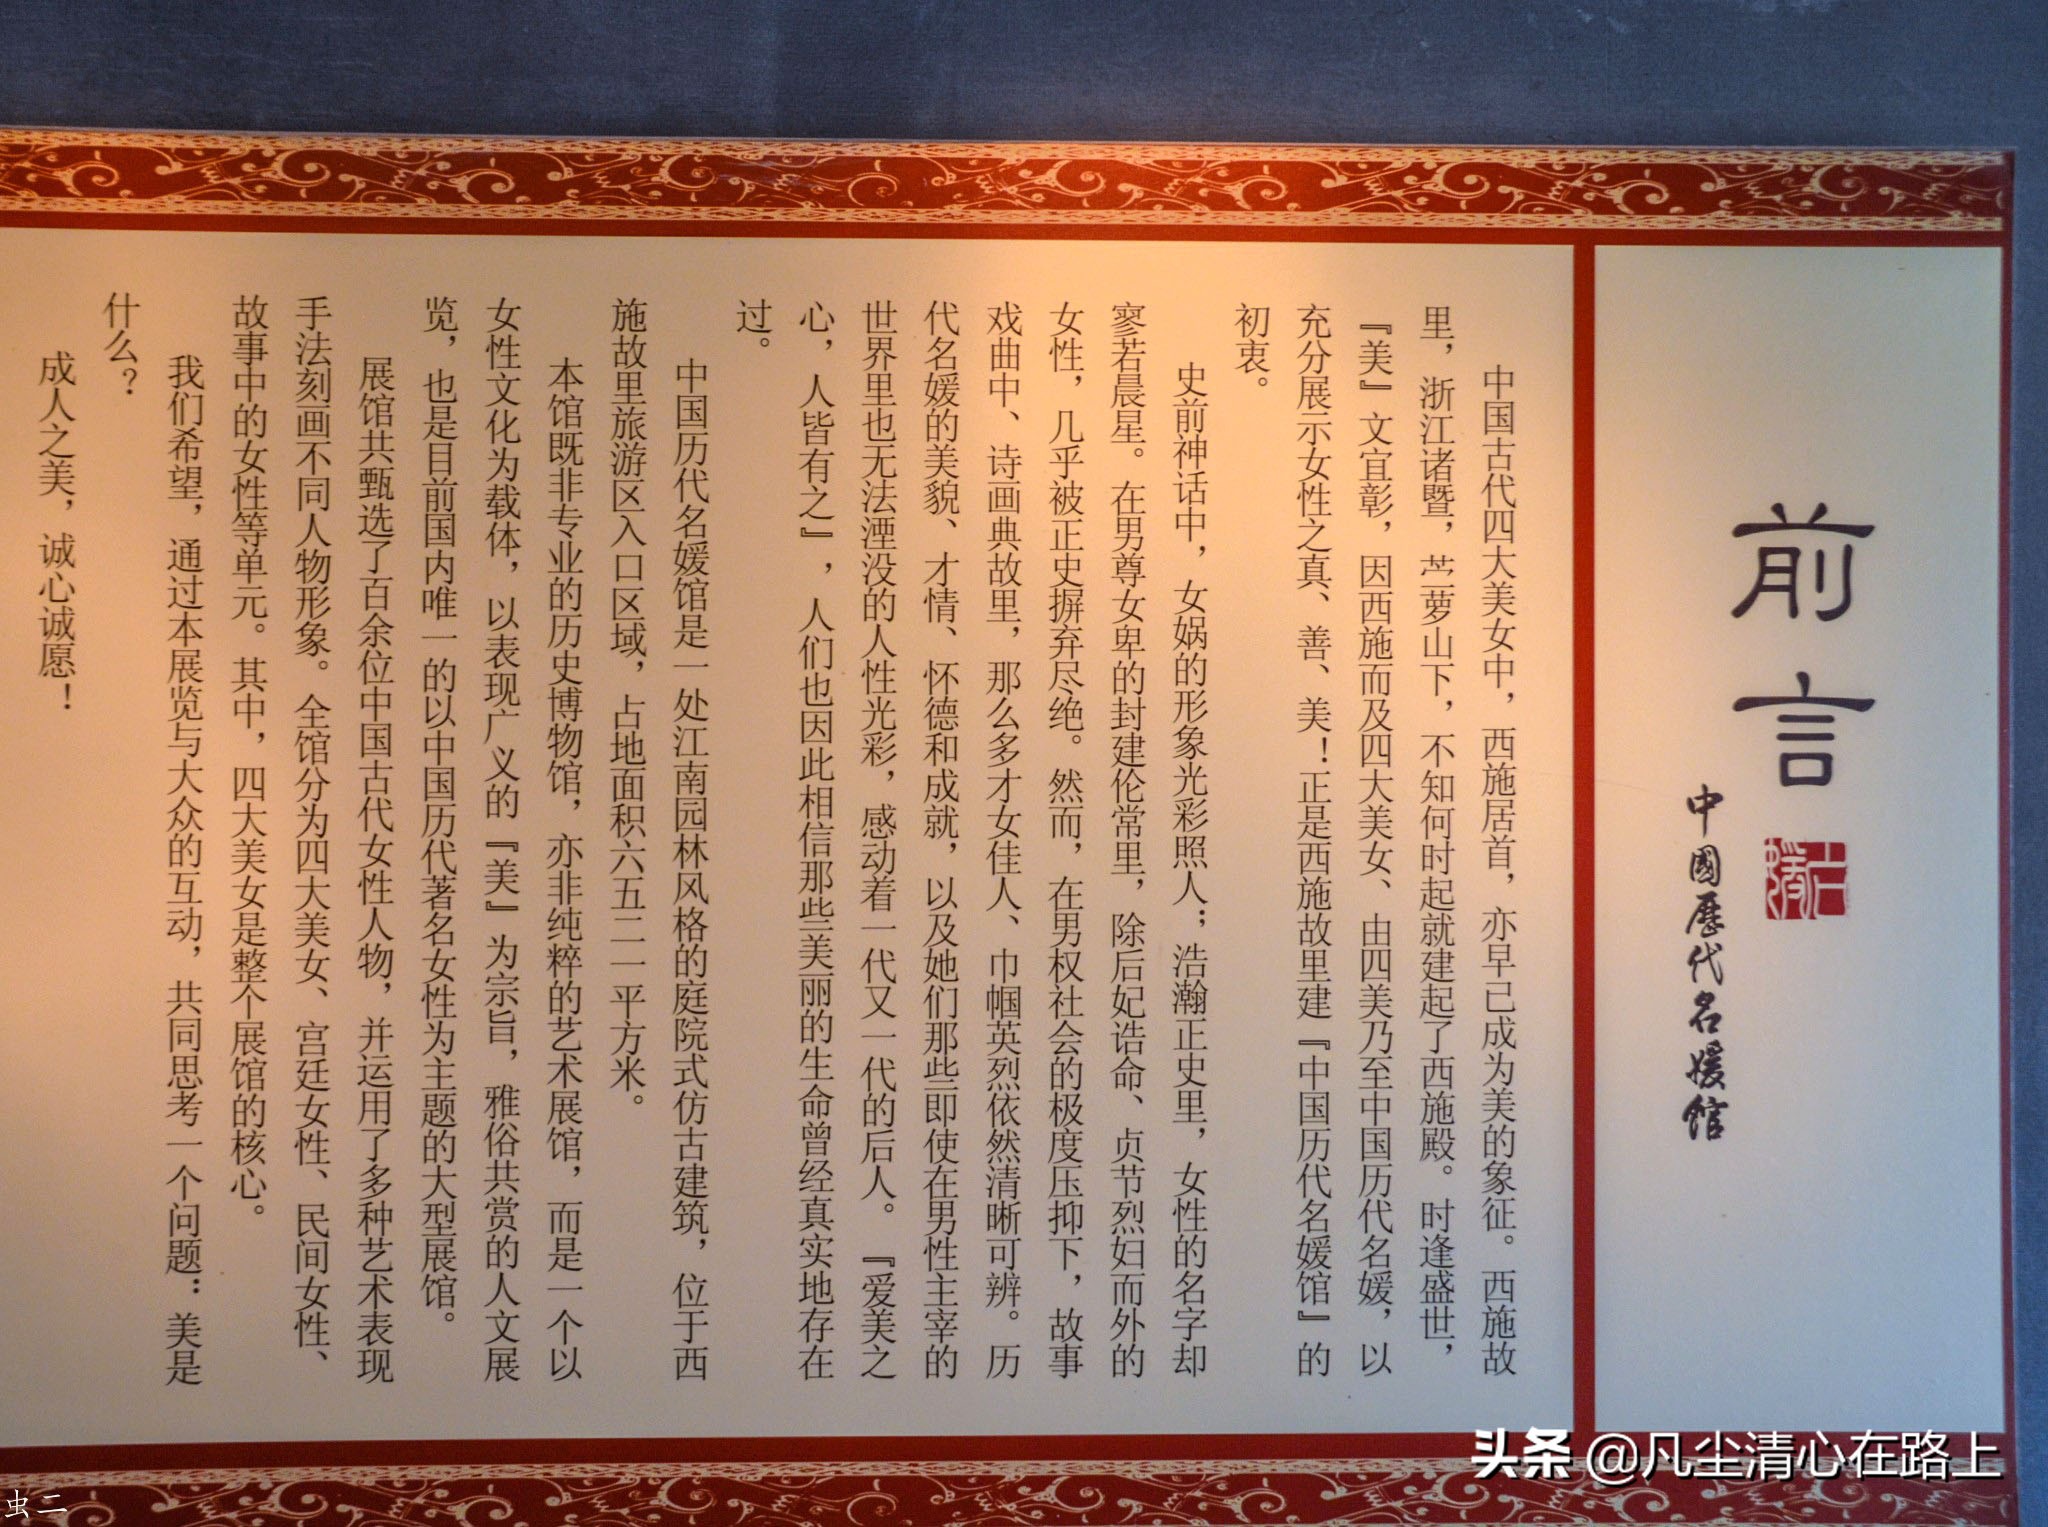 前言
中國歷代名媛馆
中国古代四大美女中，西施居首，亦早已成为美的象征。西施故
里，浙江诸暨，苎萝山下，不知何时起就建起了西施殿。时逢盛世，
『美』文宜彰，因西施而及四大美女、由四美乃至中国历代名媛，以
充分展示女性之真、善、美！正是西施故里建『中国历代名媛馆』的
初衷。
史前神话中，女娲的形象光彩照人；浩瀚正史里，女性的名字却
寥若晨星。在男尊女卑的封建伦常里，除后妃诰命、贞节烈妇而外的
女性，几乎被正史摒弃尽绝。然而，在男权社会的极度压抑下，故事
戏曲中、诗画典故里，那么多才女佳人、巾帼英烈依然清晰可辨。历
代名媛的美貌、才情、怀德和成就，以及她们那些即使在男性主宰的
世界里也无法湮没的人性光彩，感动着一代又一代的后人。『爱美之
心，人皆有之』，人们也因此相信那些美丽的生命曾经真实地存在
过。
中国历代名媛馆是一处江南园林风格的庭院式仿古建筑，位于西
施故里旅游区入口区域，占地面积六五二一平方米。
本馆既非专业的历史博物馆，亦非纯粹的艺术展馆，而是一个以
女性文化为载体，以表现广义的『美』为宗旨，雅俗共赏的人文展
览，也是目前国内唯一的以中国历代著名女性为主题的大型展馆。
展馆共甄选了百余位中国古代女性人物，并运用了多种艺术表现
手法刻画不同人物形象。全馆分为四大美女、宫廷女性、民间女性、
故事中的女性等单元。其中，四大美女是整个展馆的核心。
我们希望，通过本展览与大众的互动，共同思考一个问题：美是
什么？
成人之美，诚心诚愿！
头条 @凡尘清心在路上
虫二